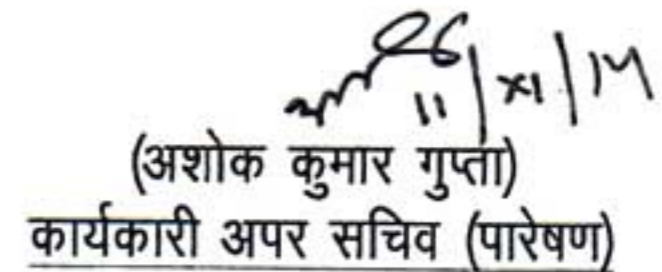 11/XI/14
(अशोक कुमार गुप्ता)
कार्यकारी अपर सचिव (पारेषण)